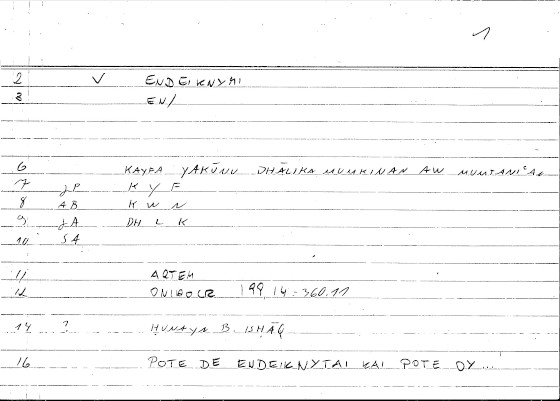 1
2 V ENDEIKNYMI
3 EN/
6 KAYFA YAKŪNU DHĀLIKA MUMKINAN AW MUMTANIʿAN
7 JP K Y F
8 AB K W N
9 JA DH L K
10 SA
11 ARTEM
12 ONIROCR 199,14 = 360.11
14 ? ḤUNAYN B. ISḤĀQ
16 POTE DE ENDEIKNYTAI KAI POTE OY...